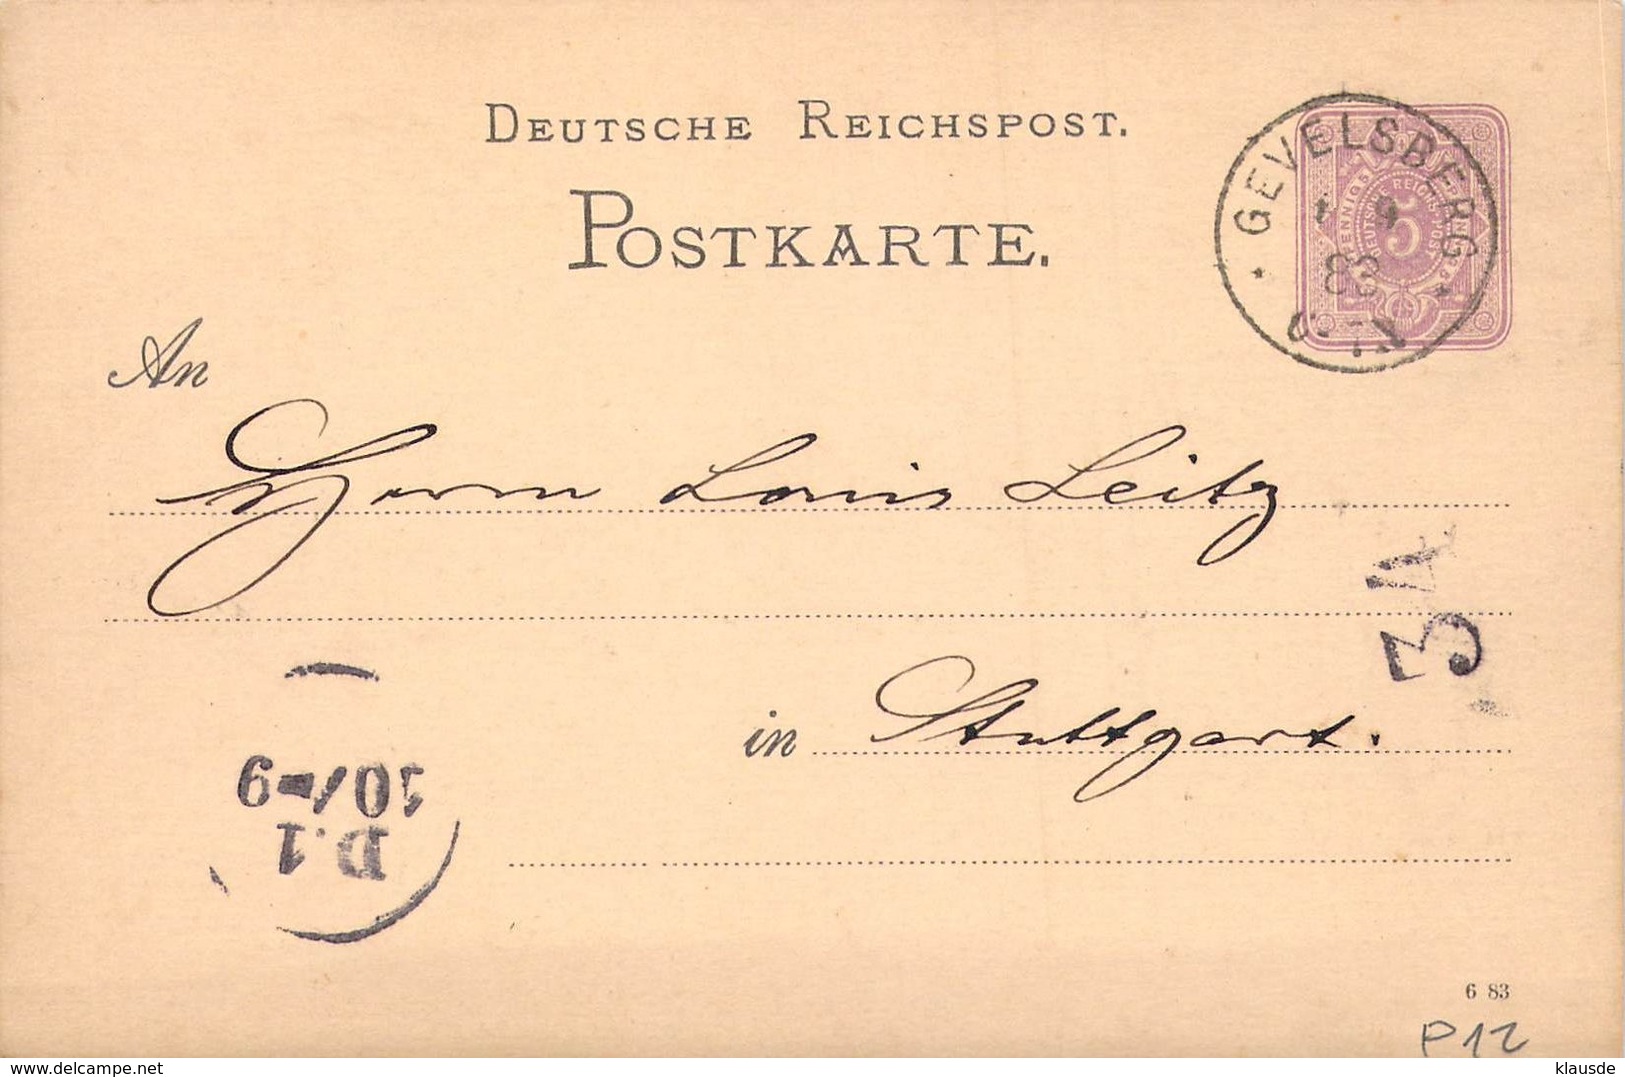 DEUTSCHE REICHSPOST.
POSTKARTE.
GEVELSBERG
9
83
5
An
Herrn Louis Leitz
3A
in Stuttgart.
10/-9
D.1
6 83
P12
www.delcampe.net
klausde